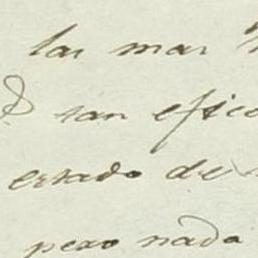 las mas
tan efica
estado de
pero nada